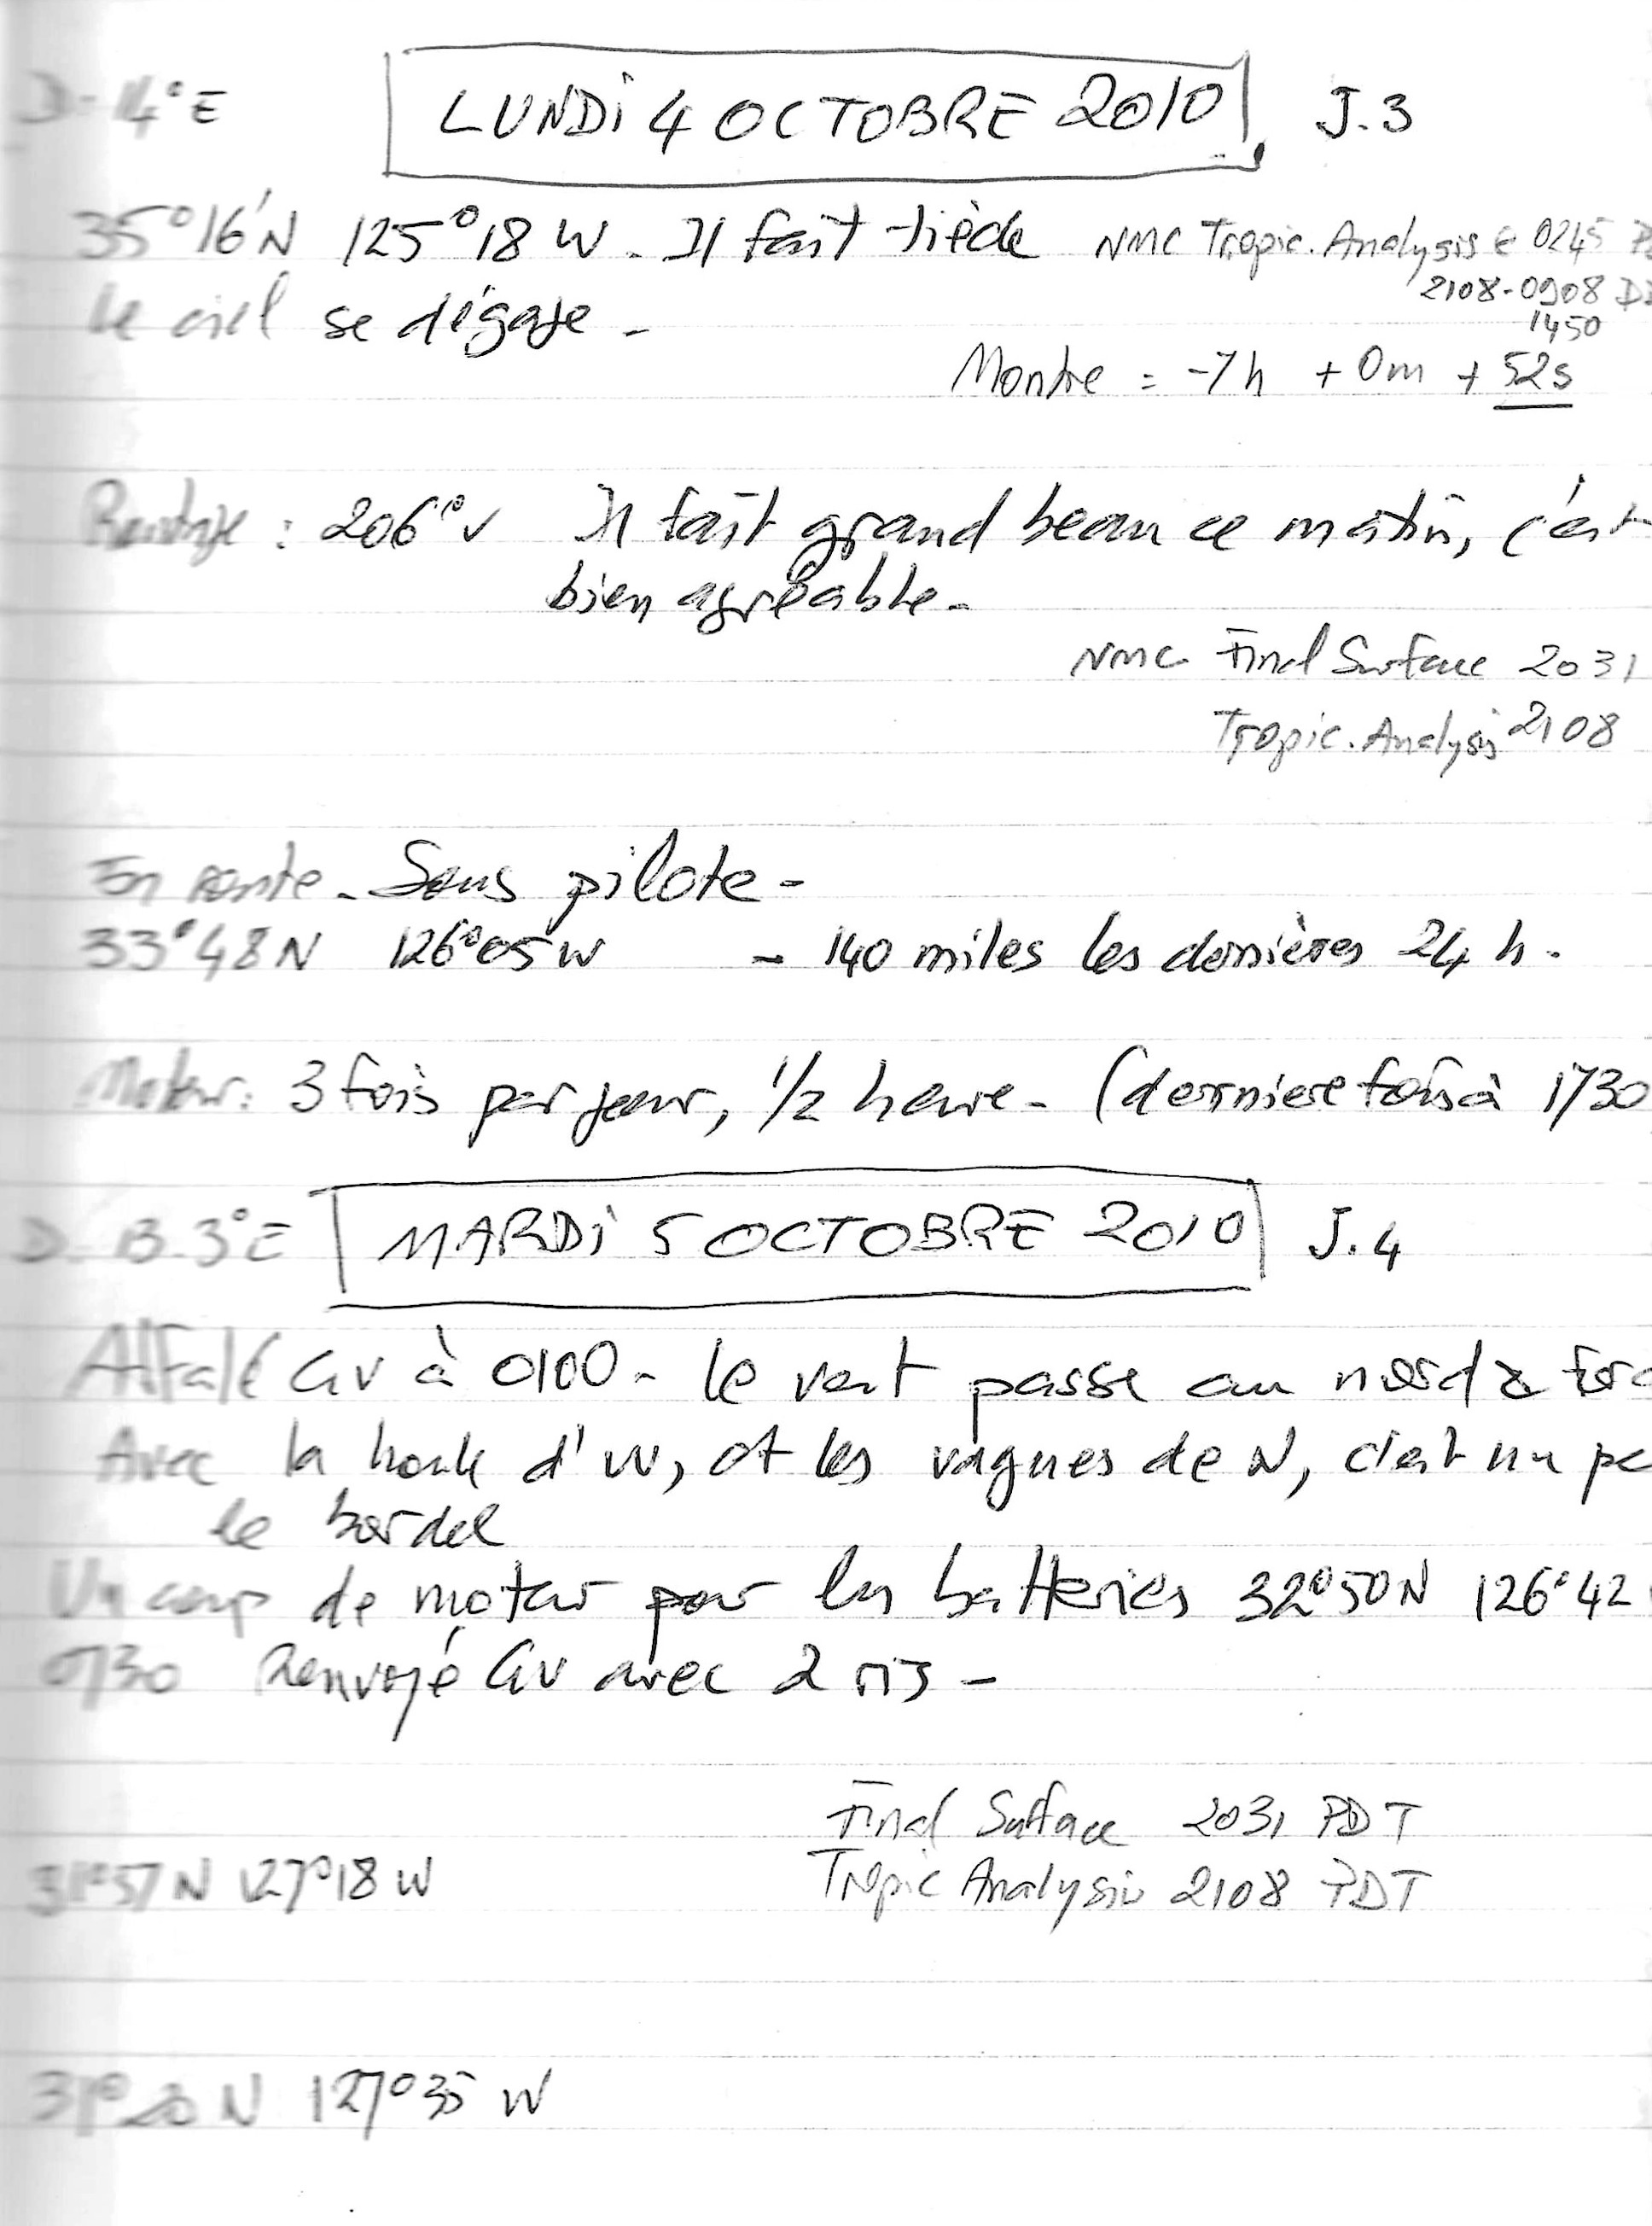 D. 14°E LUNDI 4 OCTOBRE 2010 J.3
35°16'N 125°18 W. Il fait tiède NMC Tropic. Analysis 0245
2108-0908
Le ciel se dégage - 1450
Montre = -7h + 0m + 52s
: 206°v Il fait grand beau ce matin, c'est
bien agréable -
NMC Final Surface 2031
Tropic. Analysis 2108
En route - Sous pilote -
33°48N 126°05W - 140 miles les dernières 24 h.
Moteur: 3 fois par jour, 1/2 heure - (derniere fois à 1730
D. 13.3°E MARDI 5 OCTOBRE 2010 J.4
Affalé GV à 0100 - le vent passe au nord &
Avec la houle d'W, et les vagues de N, c'est un
le bordel
Un coup de moteur pour les batteries 32°50N 126°42
0730 Renvoyé GV avec 2 ris -
Final Surface 2031 PDT
31°57 N 127°18 W Tropic Analysis 2108 PDT
31°20 N 127°35 W